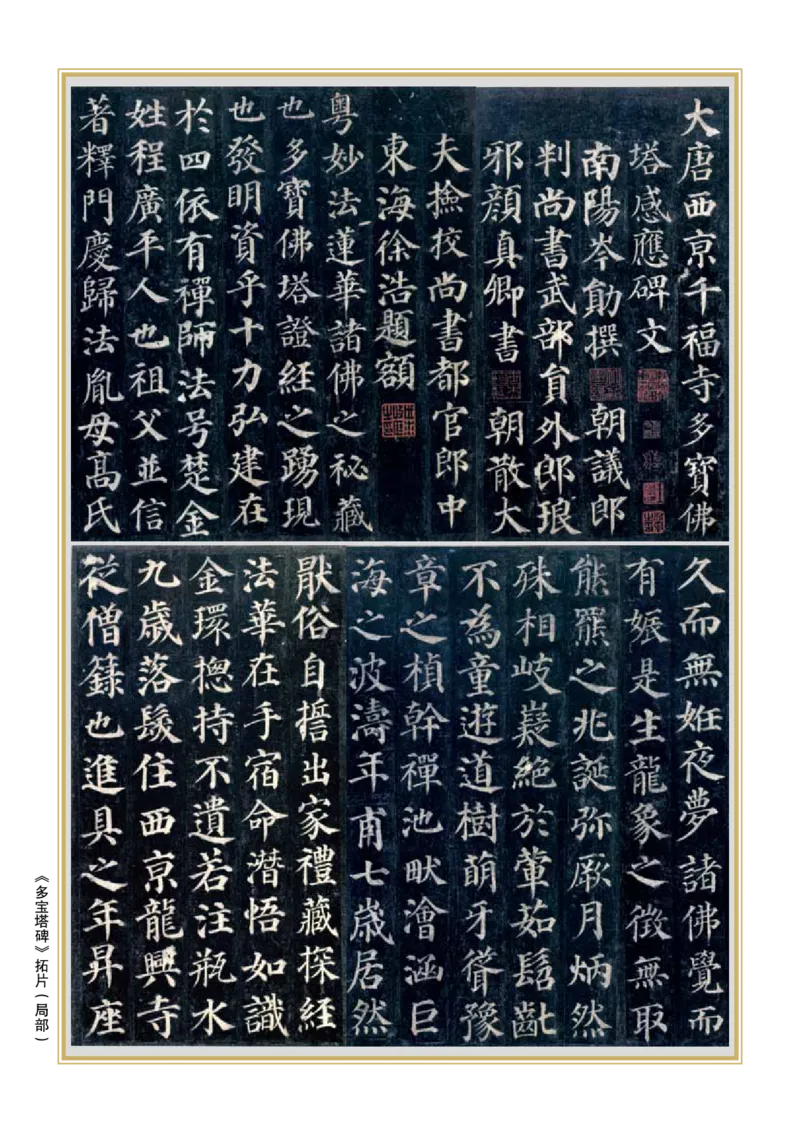 大唐西京千福寺多寶佛
塔感應碑文
南陽岑勛撰 朝議郎
判尚書武部貟外郎琅
邪顏真卿書 朝散大
夫撿挍尚書都官郎中
東海徐浩題額
粵妙法蓮華諸佛之秘藏
也多寶佛塔證經之踴現
也發明資乎十力弘建在
於四依有禪師法号楚金
姓程廣平人也祖父並信
著釋門慶歸法胤母髙氏
久而無姙夜夢諸佛覺而
有娠是生龍象之徵無取
熊羆之兆誕弥厥月炳然
殊相岐嶷絕於葷茹髫齔
不為童遊道樹萌牙聳豫
章之楨幹禪池畎澮涵巨
海之波濤年甫七歲居然
猒俗自誓出家禮藏探經
法華在手宿命潛悟如識
金環揔持不遺若注瓶水
九歲落髮住西京龍興寺
從僧籙也進具之年昇座
《多宝塔碑》拓片(局部)